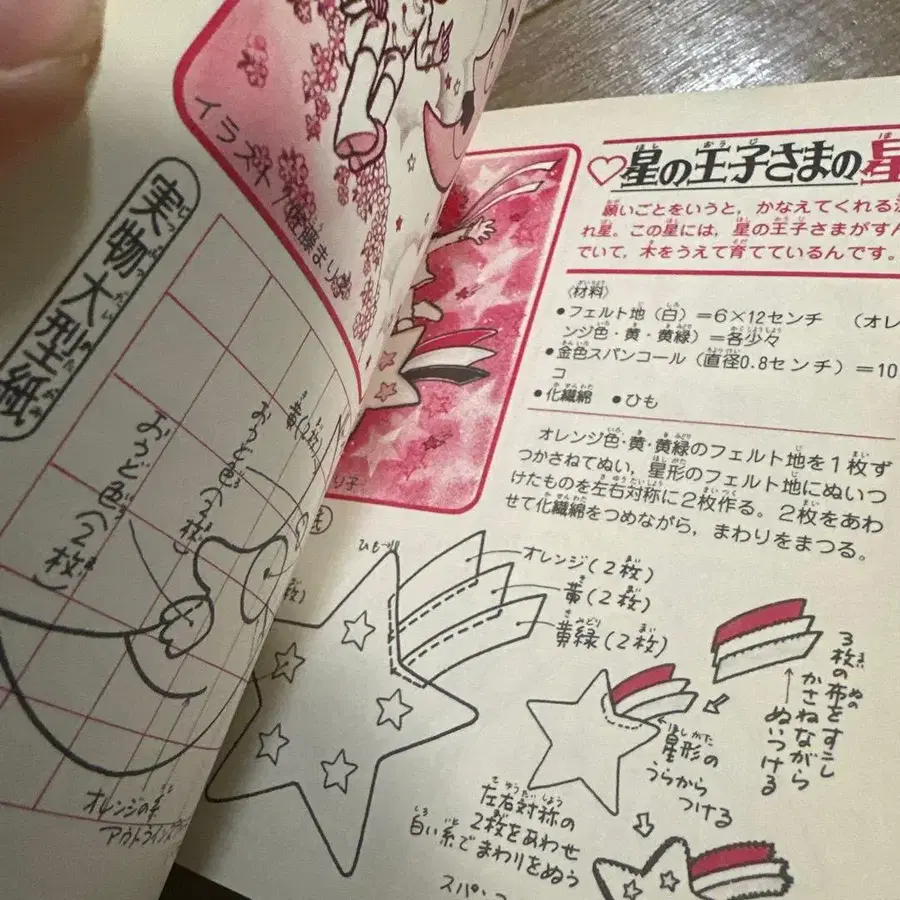 イラスト
藤まり子
実物大型紙
黄(2枚)
おうど色(2枚)
おうど色(2枚)
オレンジの糸
アウトライン
♡星の王子さまの星
願いごとをいうと，かなえてくれる
れ星。この星には，星の王子さまがすん
でいて，木をうえて育てているんです。
〈材料〉
●フェルト地（白）=6×12センチ （オレ
ンジ色・黄・黄緑）=各少々
●金色スパンコール（直径0.8センチ）=10
コ
●化繊綿 ●ひも
オレンジ色・黄・黄緑のフェルト地を1枚ず
つかさねてぬい，星形のフェルト地にぬいつ
けたものを左右対称に2枚作る。2枚をあわ
せて化繊綿をつめながら，まわりをまつる。
り子
紙
枚)
ひもつけ
オレンジ(2枚)
黄(2枚)
黄緑(2枚)
3枚の布をすこし
かさねながら
ぬいつける
星形の
うらから
つける
左右対称の
2枚をあわせ
白い糸でまわりをぬう
スパンコ